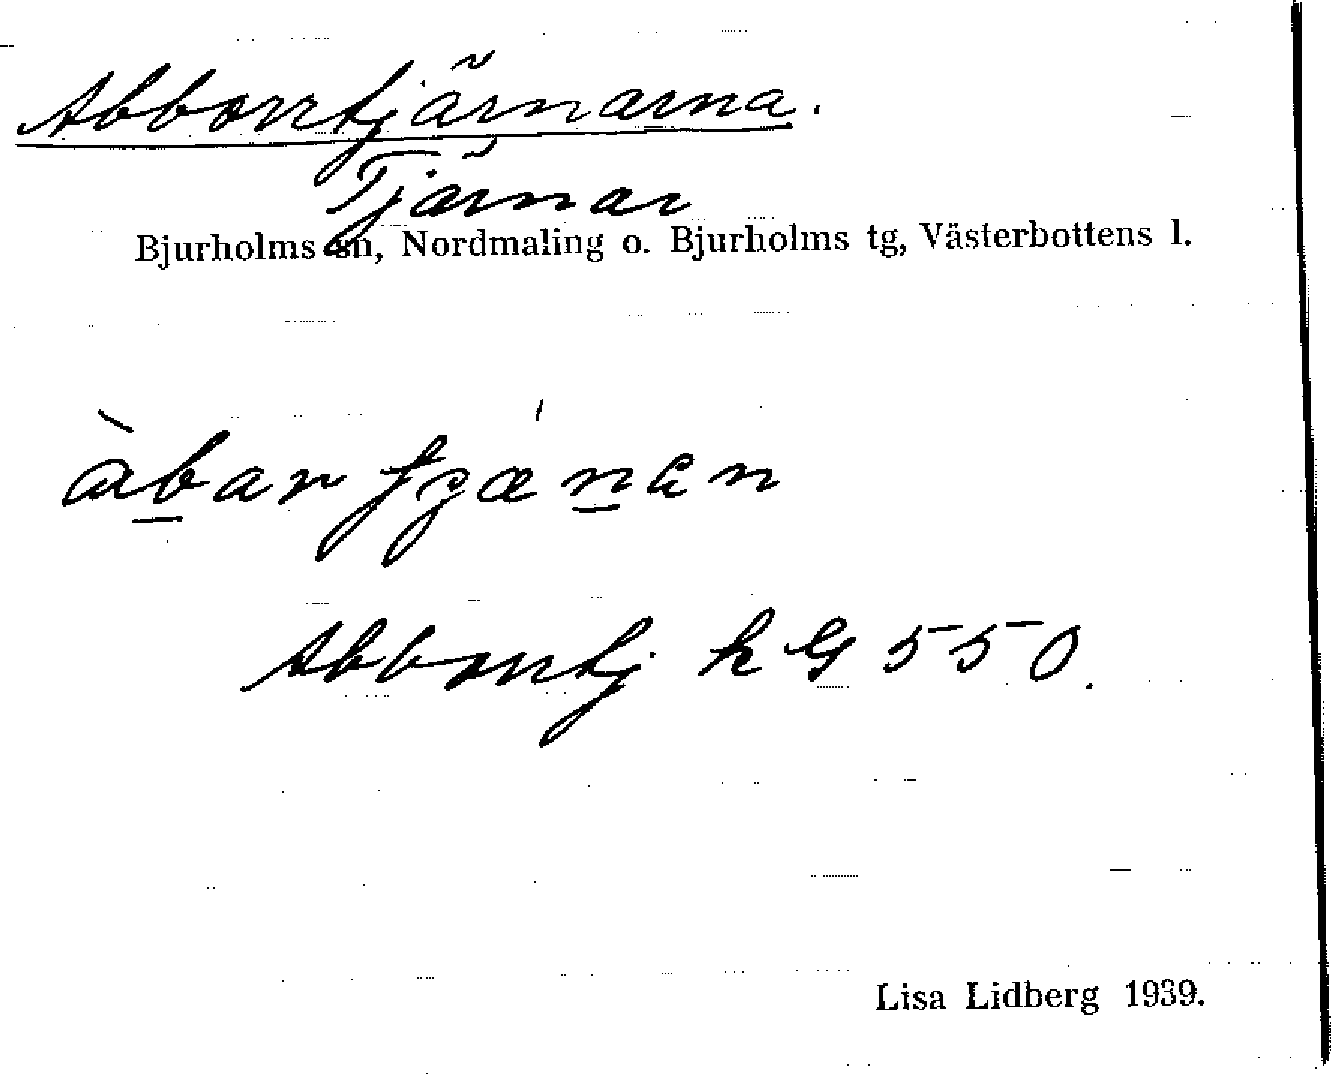 Abborrtjärnarna.
Tjärnar
Bjurholms sn, Nordmaling o. Bjurholms tg, Västerbottens l.
Abborrtj k G 550.
Lisa Lidberg 1939.